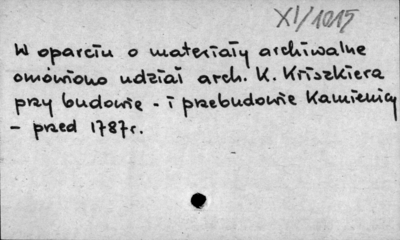 XI/1015
W oparciu o materiały archiwalne
omówiono udział arch. K. Kriszkiera
przy budowie - i przebudowie Kamienicy
- przed 1787r.